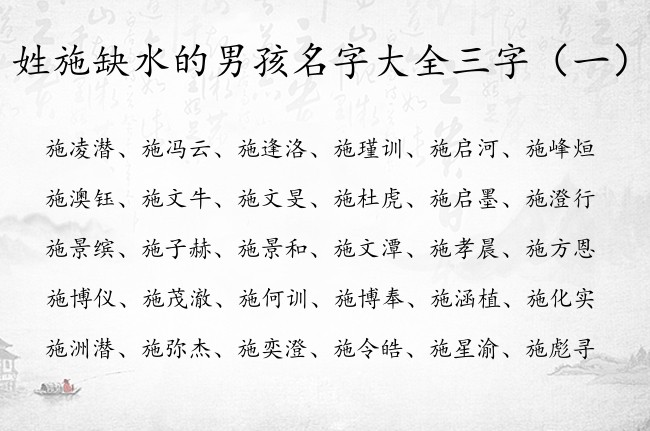 姓施缺水的男孩名字大全三字（一）
施凌潜、施冯云、施逢洛、施瑾训、施启河、施峰烜
施澳钰、施文牛、施文旻、施杜虎、施启墨、施澄行
施景缤、施子赫、施景和、施文潭、施孝晨、施方恩
施博仪、施茂澈、施何训、施博奉、施涵植、施化实
施洲潜、施弥杰、施奕澄、施令皓、施星渝、施彪寻